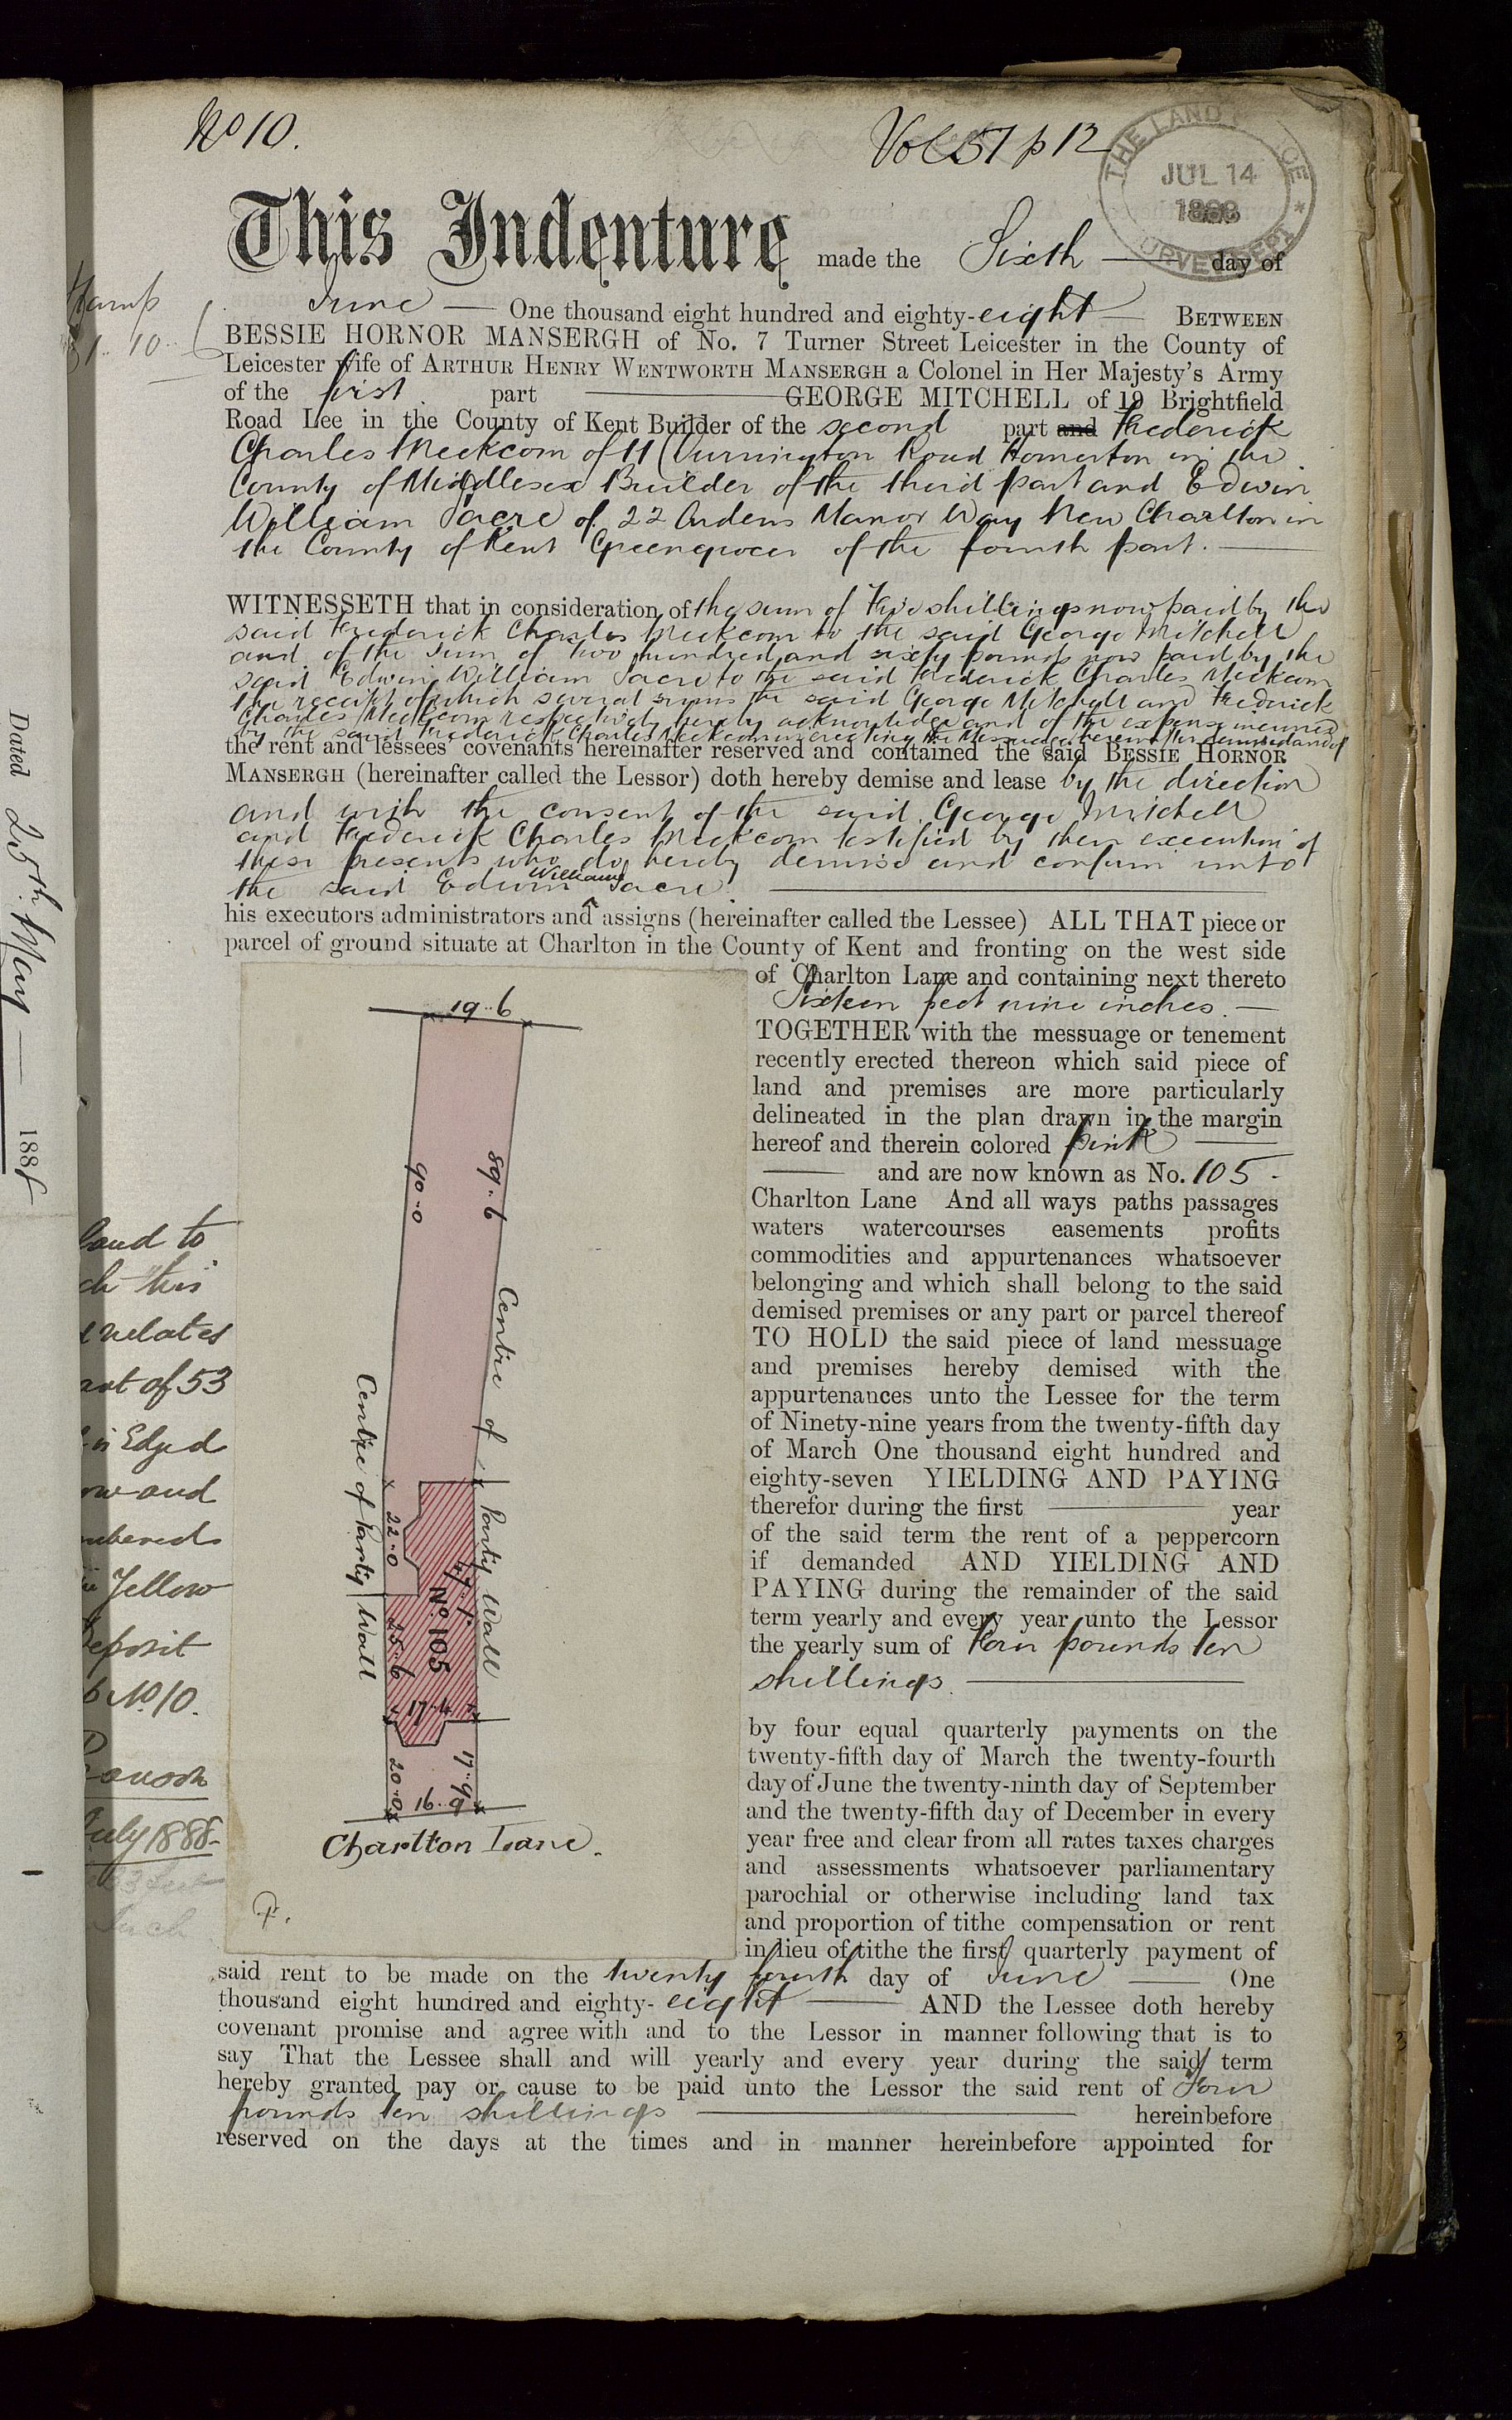 No 10.
Vol 57 p 12
THE LAND
JUL 14
1888
This Indenture made the Sixth day of
June One thousand eight hundred and eighty-eight BETWEEN
BESSIE HORNOR MANSERGH of No. 7 Turner Street Leicester in the County of
Leicester wife of ARTHUR HENRY WENTWORTH MANSERGH a Colonel in Her Majesty's Army
of the first part GEORGE MITCHELL of 19 Brightfield
Road Lee in the County of Kent Builder of the second part and Frederick
Charles Meekcom of 11 Road Homerton in the
County of Middlesex Builder of the third part and Edwin
William Sacre of 22 Ardens Manor Way New Charlton in
the County of Kent Greengrocer of the fourth part.
WITNESSETH that in consideration of the sum of Five shillings now paid by the
said Frederick Charles Meekcom to the said George Mitchell
and of the sum of two hundred and sixty pounds now paid by the
said Edwin William Sacre to the said Frederick Charles Meekcom
the receipt of which several sums the said George Mitchell and Frederick
Charles Meekcom respectively hereby acknowledge and of the expense incurred
by the said Frederick Charles Meekcom in erecting the Messuage hereinafter demised and of
the rent and lessees' covenants hereinafter reserved and contained the said BESSIE HORNOR
MANSERGH (hereinafter called the Lessor) doth hereby demise and lease by the direction
and with the consent of the said George Mitchell
and Frederick Charles Meekcom testified by their execution of
these presents who do hereby demise and confirm unto
the said Edwin William Sacre
his executors administrators and assigns (hereinafter called the Lessee) ALL THAT piece or
parcel of ground situate at Charlton in the County of Kent and fronting on the west side
of Charlton Lane and containing next thereto
Sixteen feet nine inches.
TOGETHER with the messuage or tenement
recently erected thereon which said piece of
land and premises are more particularly
delineated in the plan drawn in the margin
hereof and therein colored pink
and are now known as No. 105
Charlton Lane And all ways paths passages
waters watercourses easements profits
commodities and appurtenances whatsoever
belonging and which shall belong to the said
demised premises or any part or parcel thereof
TO HOLD the said piece of land messuage
and premises hereby demised with the
appurtenances unto the Lessee for the term
of Ninety-nine years from the twenty-fifth day
of March One thousand eight hundred and
eighty-seven YIELDING AND PAYING
therefor during the first year
of the said term the rent of a peppercorn
if demanded AND YIELDING AND
PAYING during the remainder of the said
term yearly and every year unto the Lessor
the yearly sum of Four pounds ten
shillings
by four equal quarterly payments on the
twenty-fifth day of March the twenty-fourth
day of June the twenty-ninth day of September
and the twenty-fifth day of December in every
year free and clear from all rates taxes charges
and assessments whatsoever parliamentary
parochial or otherwise including land tax
and proportion of tithe compensation or rent
in lieu of tithe the first quarterly payment of
said rent to be made on the twenty fourth day of June One
thousand eight hundred and eighty-eight AND the Lessee doth hereby
covenant promise and agree with and to the Lessor in manner following that is to
say That the Lessee shall and will yearly and every year during the said term
hereby granted pay or cause to be paid unto the Lessor the said rent of Four
pounds ten shillings hereinbefore
reserved on the days at the times and in manner hereinbefore appointed for
19..6
90..0
89..6
Centre of Party Wall
Centre of Party Wall
22..0
No. 105
25..6
17..4
20..0
17..9
16..9
Charlton Lane.
Dated 25th May 1888
land to
relates
of 53
Edged
and
Yellow
No 10.
July 1888